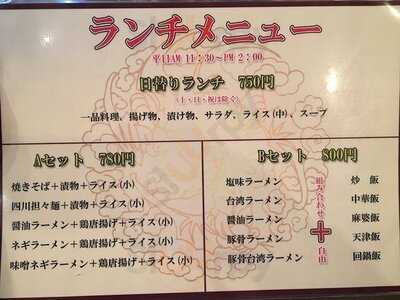 ランチメニュー
平日AM 11:30~PM 2:00
日替りランチ 750円
(土・日・祝は除く)
一品料理、揚げ物、漬け物、サラダ、ライス(中)、スープ
Aセット 780円
焼きそば+漬物+ライス(小)
四川担々麺+漬物+ライス(小)
醤油ラーメン+鶏唐揚げ+ライス(小)
ネギラーメン+鶏唐揚げ+ライス(小)
味噌ネギラーメン+鶏唐揚げ+ライス(小)
Bセット 800円
塩味ラーメン
台湾ラーメン
醤油ラーメン
豚骨ラーメン
豚骨台湾ラーメン
組み合わせ+自由
炒飯
中華飯
麻婆飯
天津飯
回鍋飯